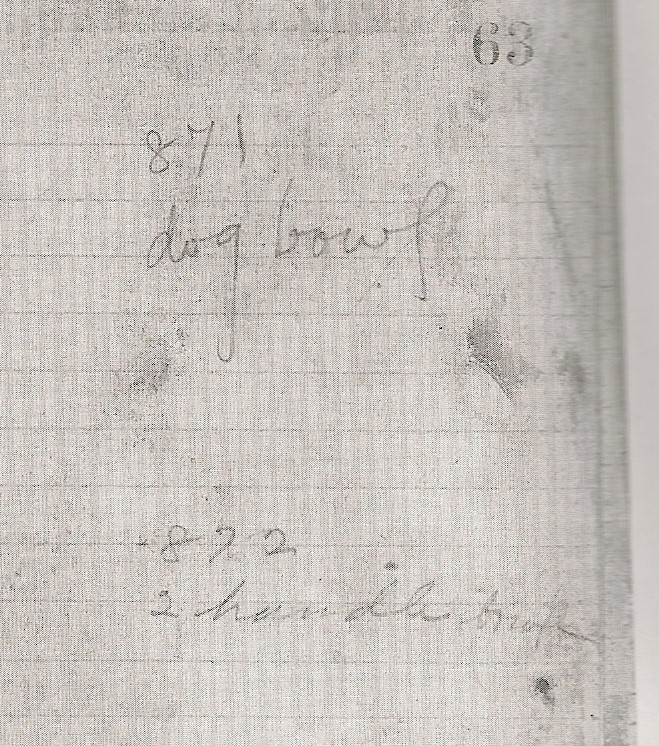 63
871
dog bowl
872
2 handle bowl